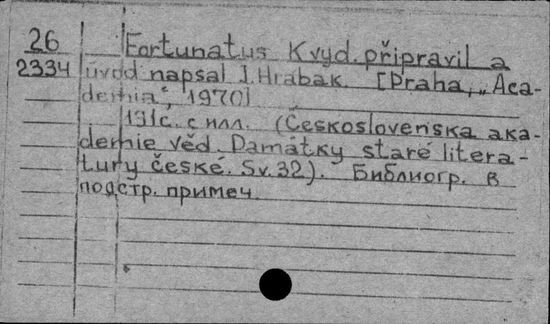 26 Fortunatus K vyd. připravil a
2334 úvod napsal J. Hrabak. [Praha, „Aca-
demia", 1970]
131с. с илл. (Československa aka-
demie věd. Památky staré litera-
tury české. Sv. 32). Библиогр. в
подстр. примеч.